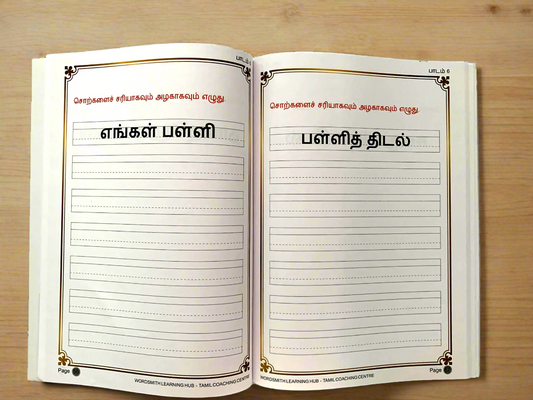 பாடம்
சொற்களைச் சரியாகவும் அழகாகவும் எழுது.
எங்கள் பள்ளி
Page
WORDSMITH LEARNING HUB - TAMIL COACHING CENTRE
பாடம் 6
சொற்களைச் சரியாகவும் அழகாகவும் எழுது.
பள்ளித் திடல்
Page
WORDSMITH LEARNING HUB - TAMIL COACHING CENTRE